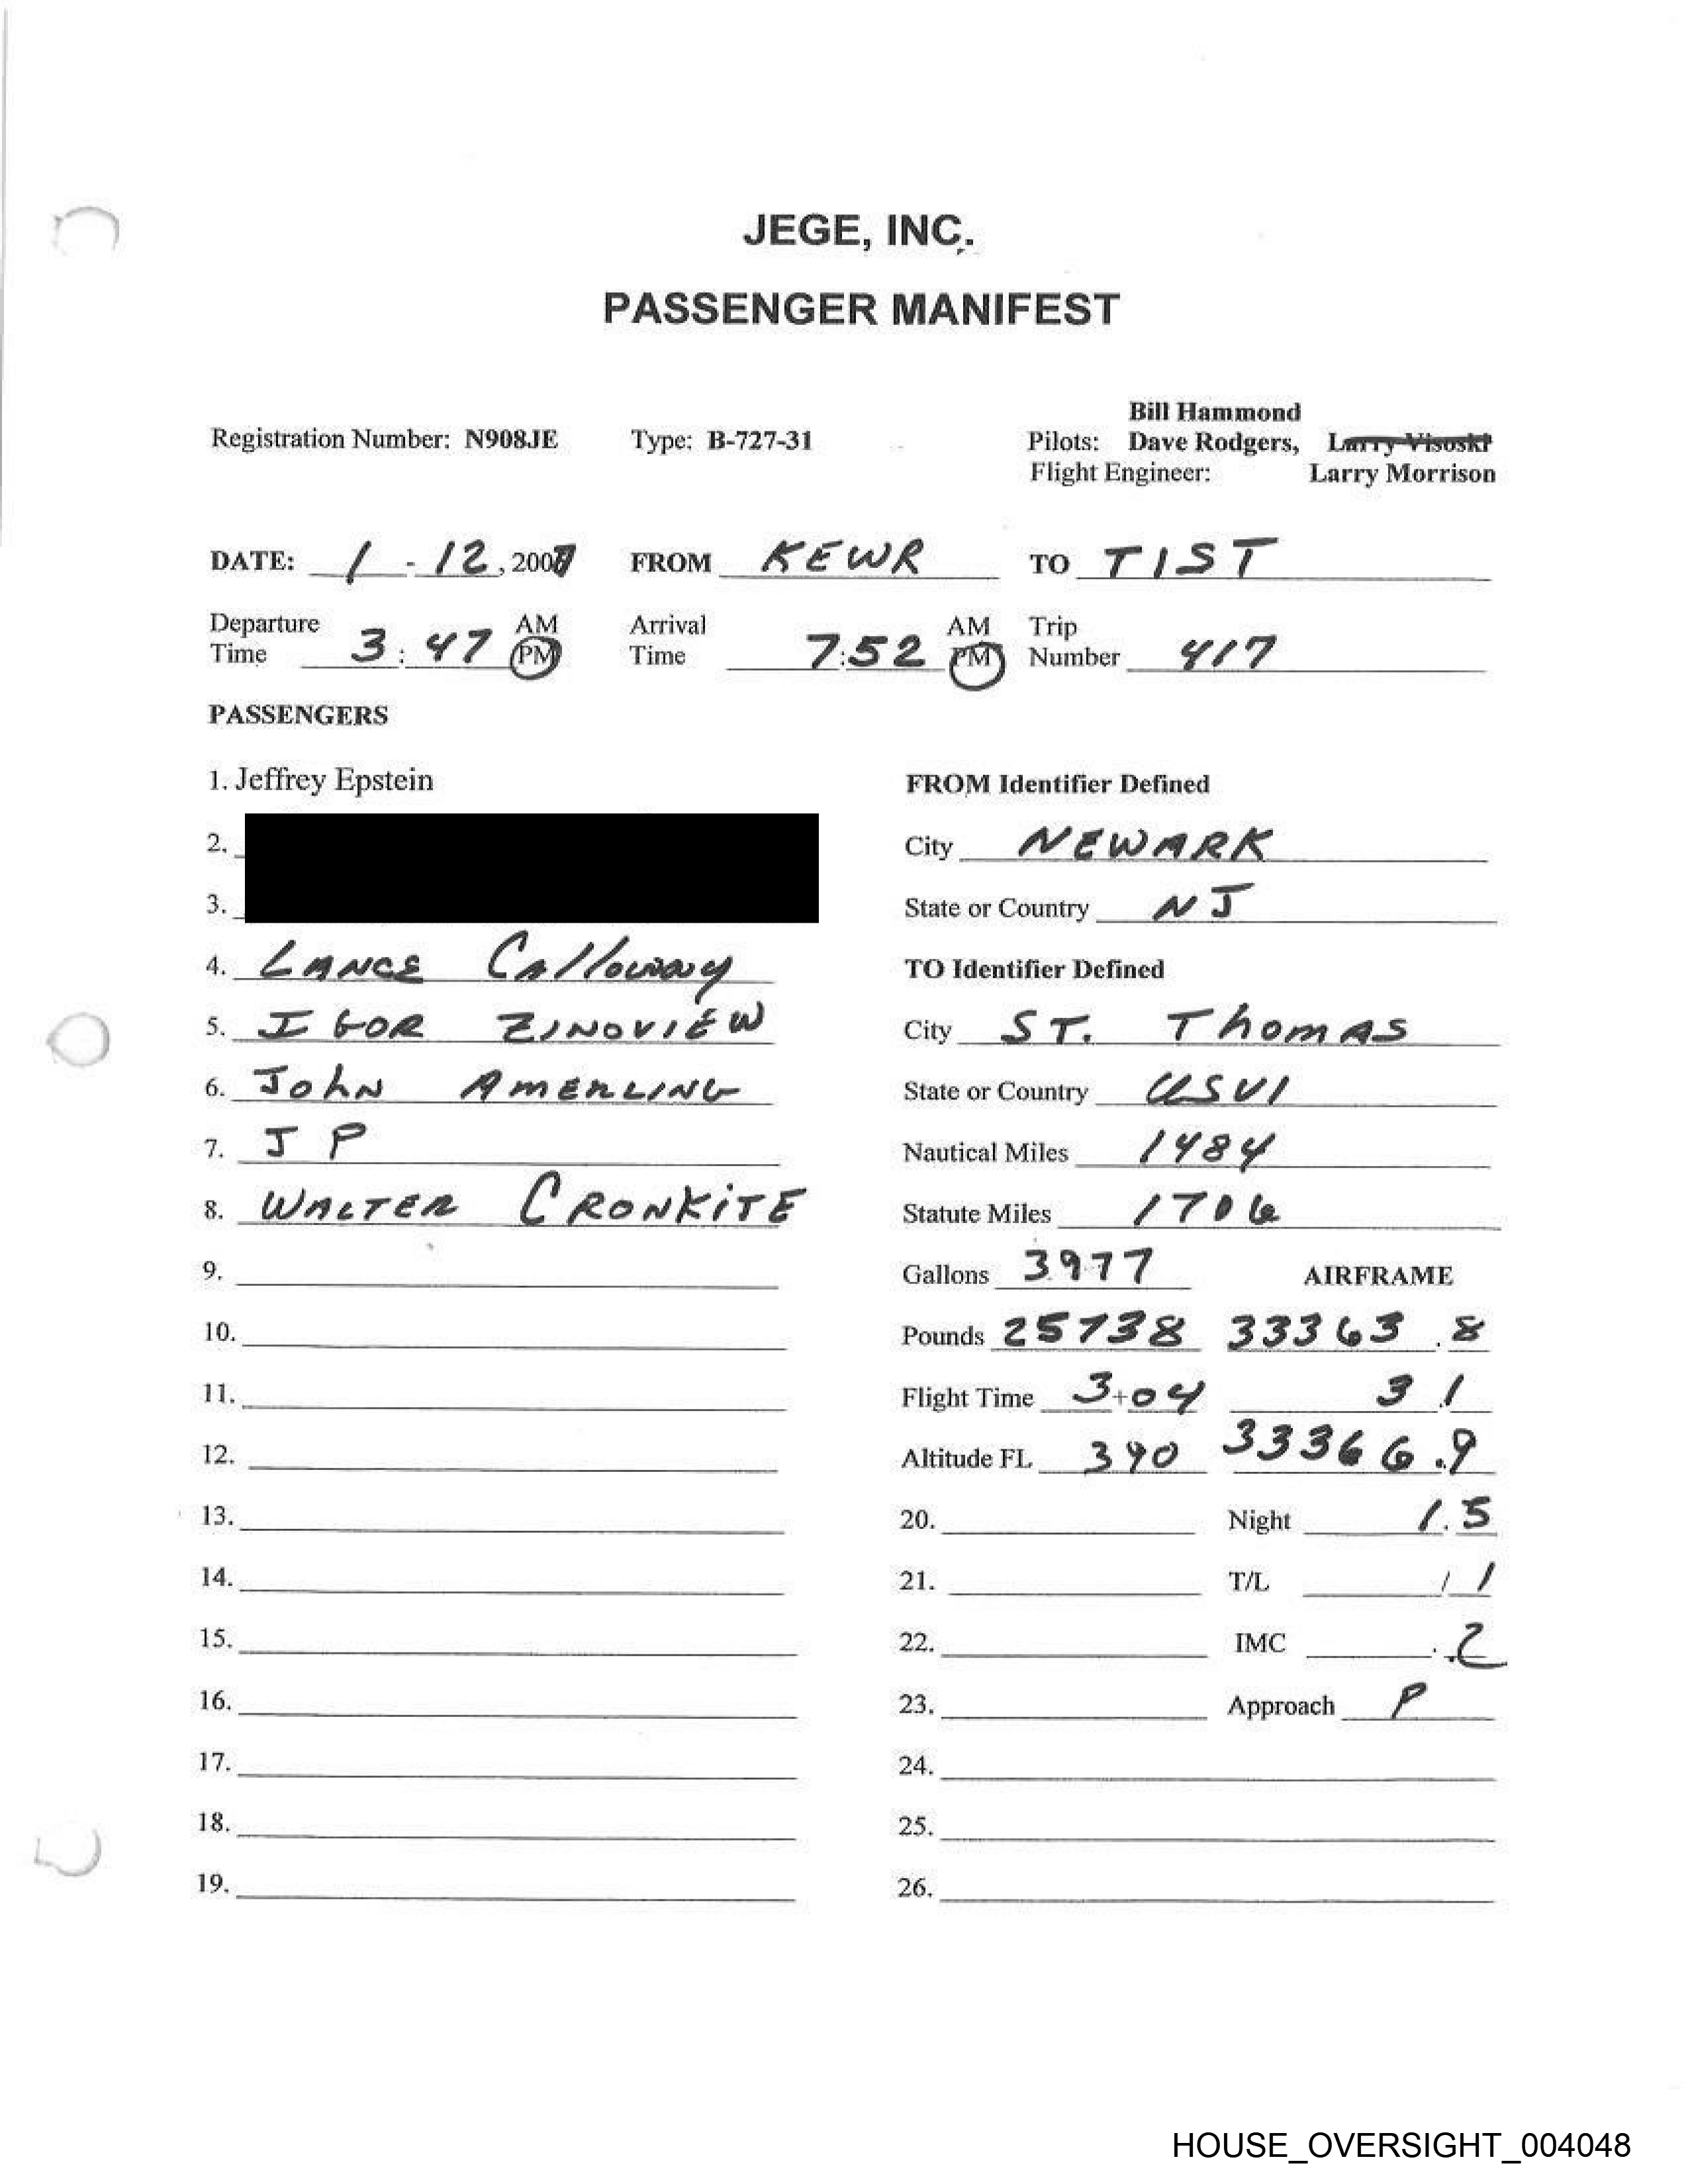 JEGE, INC.
PASSENGER MANIFEST
Bill Hammond
Registration Number: N908JE Type: B-727-31 Pilots: Dave Rodgers, Larry Visoski
Flight Engineer: Larry Morrison
DATE: 1 - 12, 2007 FROM KEWR TO TIST
Departure Time 3:47 AM PM Arrival Time 7:52 AM PM Trip Number 417
PASSENGERS
1. Jeffrey Epstein
2.
3.
4. LANCE CAllowAy
5. IGOR ZINOVIEW
6. JohN AMERLING
7. J P
8. WALTER CRONKiTE
9.
10.
11.
12.
13.
14.
15.
16.
17.
18.
19.
FROM Identifier Defined
City NEWARK
State or Country NJ
TO Identifier Defined
City ST. ThomAS
State or Country USVI
Nautical Miles 1484
Statute Miles 1706
Gallons 3977 AIRFRAME
Pounds 25738 33363.8
Flight Time 3+04 3.1
Altitude FL 390 33366.9
20. Night 1.5
21. T/L 1/1
22. IMC .2
23. Approach P
24.
25.
26.
HOUSE_OVERSIGHT_004048